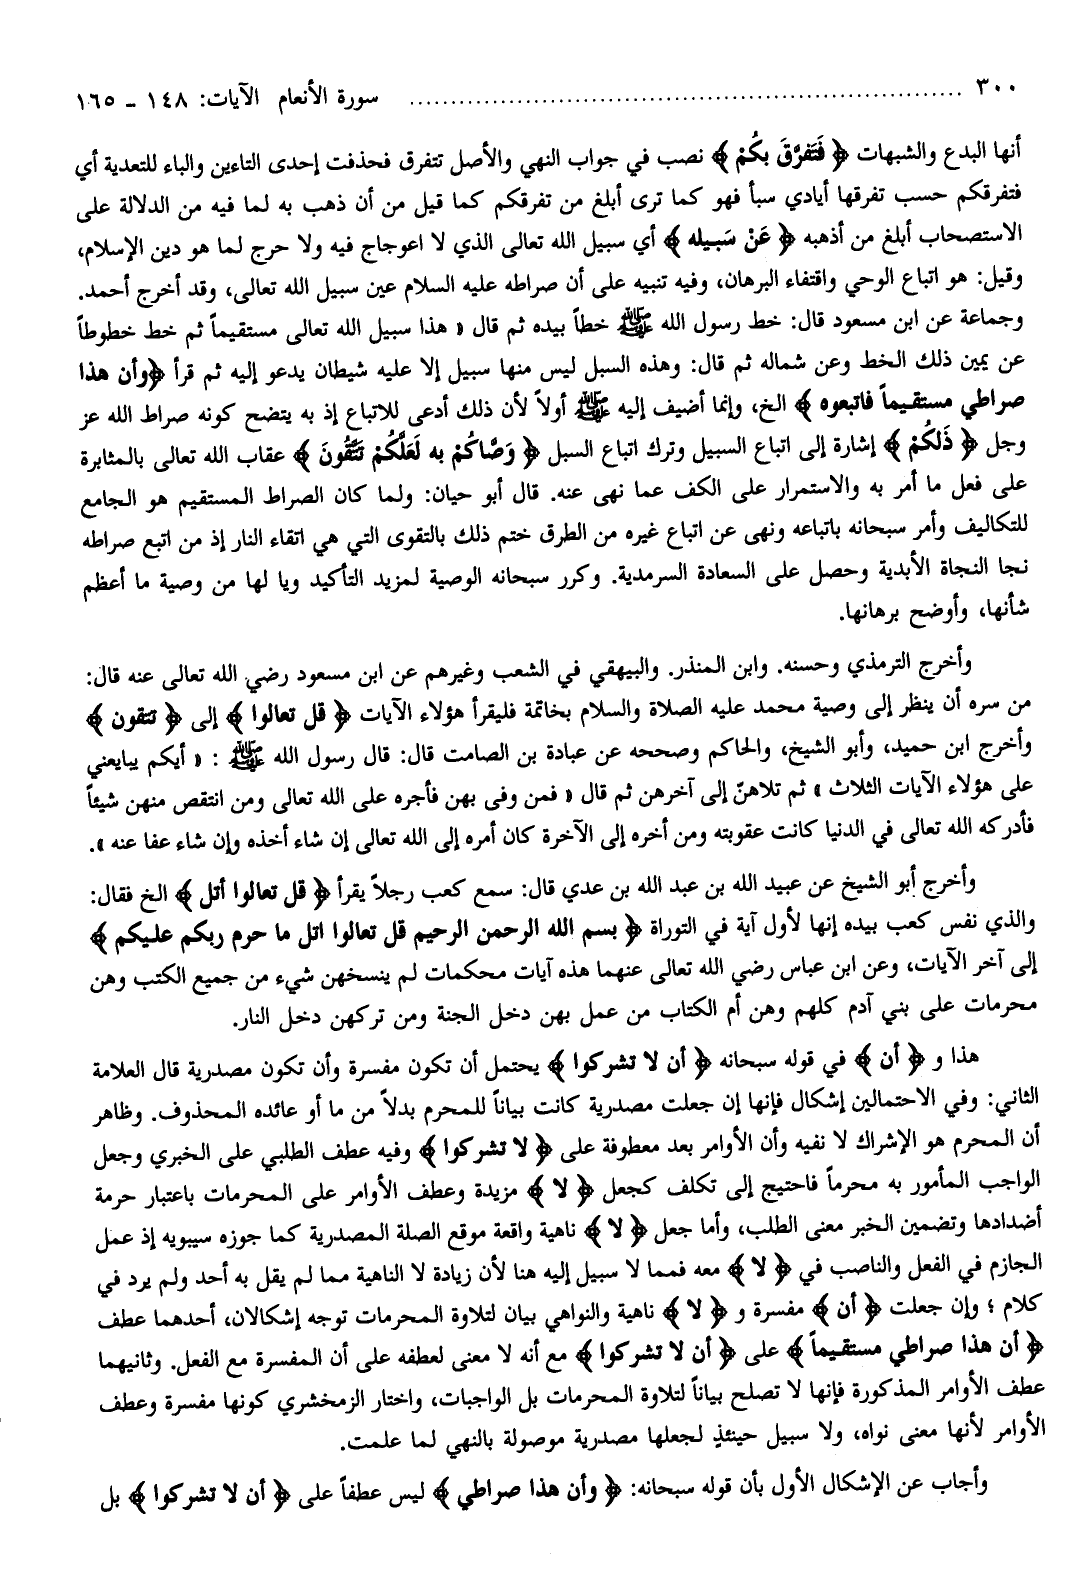 ٣٠٠ ........................................ سورة الأنعام الآيات: ١٤٨ - ١٦٥
أنها البدع والشبهات ﴿ فَتَفَرَّقَ بِكُمْ ﴾ نصب في جواب النهي والأصل تتفرق فحذفت إحدى التاءين والباء للتعدية أي
فتفرقكم حسب تفرقها أيادي سبأ فهو كما ترى أبلغ من تفرقكم كما قيل من أن ذهب به لما فيه من الدلالة على
الاستصحاب أبلغ من أذهبه ﴿ عَنْ سَبيله ﴾ أي سبيل الله تعالى الذي لا اعوجاج فيه ولا حرج لما هو دين الإسلام،
وقيل: هو اتباع الوحي واقتفاء البرهان، وفيه تنبيه على أن صراطه عليه السلام عين سبيل الله تعالى، وقد أخرج أحمد.
وجماعة عن ابن مسعود قال: خط رسول الله ﷺ خطاً بيده ثم قال « هذا سبيل الله تعالى مستقيماً ثم خط خطوطاً
عن يمين ذلك الخط وعن شماله ثم قال: وهذه السبل ليس منها سبيل إلا عليه شيطان يدعو إليه ثم قرأ ﴿وأن هذا
صراطي مستقيماً فاتبعوه ﴾ الخ، وإنما أضيف إليه ﷺ أولاً لأن ذلك أدعى للاتباع إذ به يتضح كونه صراط الله عز
وجل ﴿ ذَلكُمْ ﴾ إشارة إلى اتباع السبيل وترك اتباع السبل ﴿ وَصَّاكُمْ به لَعَلَّكُمْ تَتَّقُونَ ﴾ عقاب الله تعالى بالمثابرة
على فعل ما أمر به والاستمرار على الكف عما نهى عنه. قال أبو حيان: ولما كان الصراط المستقيم هو الجامع
للتكاليف وأمر سبحانه باتباعه ونهى عن اتباع غيره من الطرق ختم ذلك بالتقوى التي هي اتقاء النار إذ من اتبع صراطه
نجا النجاة الأبدية وحصل على السعادة السرمدية. وكرر سبحانه الوصية لمزيد التأكيد ويا لها من وصية ما أعظم
شأنها، وأوضح برهانها.
وأخرج الترمذي وحسنه. وابن المنذر. والبيهقي في الشعب وغيرهم عن ابن مسعود رضي الله تعالى عنه قال:
من سره أن ينظر إلى وصية محمد عليه الصلاة والسلام بخاتمة فليقرأ هؤلاء الآيات ﴿ قل تعالوا ﴾ إلى ﴿ تتقون ﴾
وأخرج ابن حميد، وأبو الشيخ، والحاكم وصححه عن عبادة بن الصامت قال: قال رسول الله ﷺ : « أيكم يبايعني
على هؤلاء الآيات الثلاث » ثم تلاهنّ إلى آخرهن ثم قال « فمن وفى بهن فأجره على الله تعالى ومن انتقص منهن شيئاً
فأدركه الله تعالى في الدنيا كانت عقوبته ومن أخره إلى الآخرة كان أمره إلى الله تعالى إن شاء أخذه وإن شاء عفا عنه ».
وأخرج أبو الشيخ عن عبيد الله بن عبد الله بن عدي قال: سمع كعب رجلاً يقرأ ﴿ قل تعالوا أتل ﴾ الخ فقال:
والذي نفس كعب بيده إنها لأول آية في التوراة ﴿ بسم الله الرحمن الرحيم قل تعالوا اتل ما حرم ربكم عليكم ﴾
إلى آخر الآيات، وعن ابن عباس رضي الله تعالى عنهما هذه آيات محكمات لم ينسخهن شيء من جميع الكتب وهن
محرمات على بني آدم كلهم وهن أم الكتاب من عمل بهن دخل الجنة ومن تركهن دخل النار.
هذا و ﴿ أن ﴾ في قوله سبحانه ﴿ أن لا تشركوا ﴾ يحتمل أن تكون مفسرة وأن تكون مصدرية قال العلامة
الثاني: وفي الاحتمالين إشكال فإنها إن جعلت مصدرية كانت بياناً للمحرم بدلاً من ما أو عائده المحذوف. وظاهر
أن المحرم هو الإشراك لا نفيه وأن الأوامر بعد معطوفة على ﴿ لا تشركوا ﴾ وفيه عطف الطلبي على الخبري وجعل
الواجب المأمور به محرماً فاحتيج إلى تكلف كجعل ﴿ لا ﴾ مزيدة وعطف الأوامر على المحرمات باعتبار حرمة
أضدادها وتضمين الخبر معنى الطلب، وأما جعل ﴿ لا ﴾ ناهية واقعة موقع الصلة المصدرية كما جوزه سيبويه إذ عمل
الجازم في الفعل والناصب في ﴿ لا ﴾ معه فمما لا سبيل إليه هنا لأن زيادة لا الناهية مما لم يقل به أحد ولم يرد في
كلام ؛ وإن جعلت ﴿ أن ﴾ مفسرة و ﴿ لا ﴾ ناهية والنواهي بيان لتلاوة المحرمات توجه إشكالان، أحدهما عطف
﴿ أن هذا صراطي مستقيماً ﴾ على ﴿ أن لا تشركوا ﴾ مع أنه لا معنى لعطفه على أن المفسرة مع الفعل. وثانيهما
عطف الأوامر المذكورة فإنها لا تصلح بياناً لتلاوة المحرمات بل الواجبات، واختار الزمخشري كونها مفسرة وعطف
الأوامر لأنها معنى نواه، ولا سبيل حينئذٍ لجعلها مصدرية موصولة بالنهي لما علمت.
وأجاب عن الإشكال الأول بأن قوله سبحانه: ﴿ وأن هذا صراطي ﴾ ليس عطفاً على ﴿ أن لا تشركوا ﴾ بل